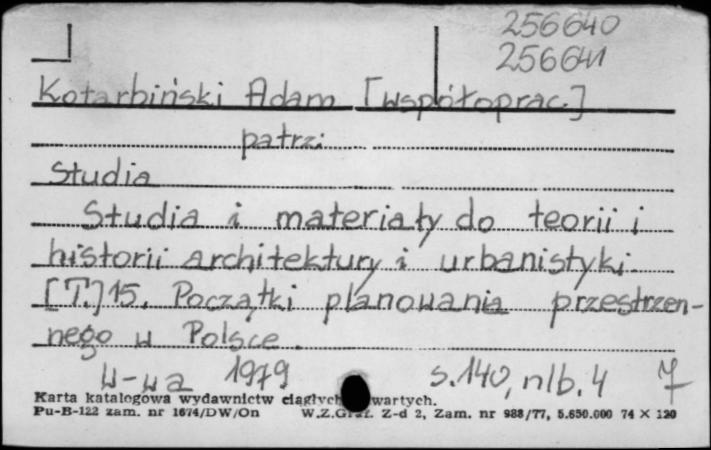 256640
256641
Kotarbiński Adam [współoprac.]
patrz:
Studia
Studia i materiały do teorii i
historii architektury i urbanistyki.
[T.] 15. Początki planowania przestrzen-
nego w Polsce.
W-wa 1979 s.140, nlb. 4 7
Karta katalogowa wydawnictw ciągłych wartych.
Pu-B-122 zam. nr 1674/DW/On W.Z.Graf. Z-d 2, Zam. nr 988/77, 5.650.000 74 X 120